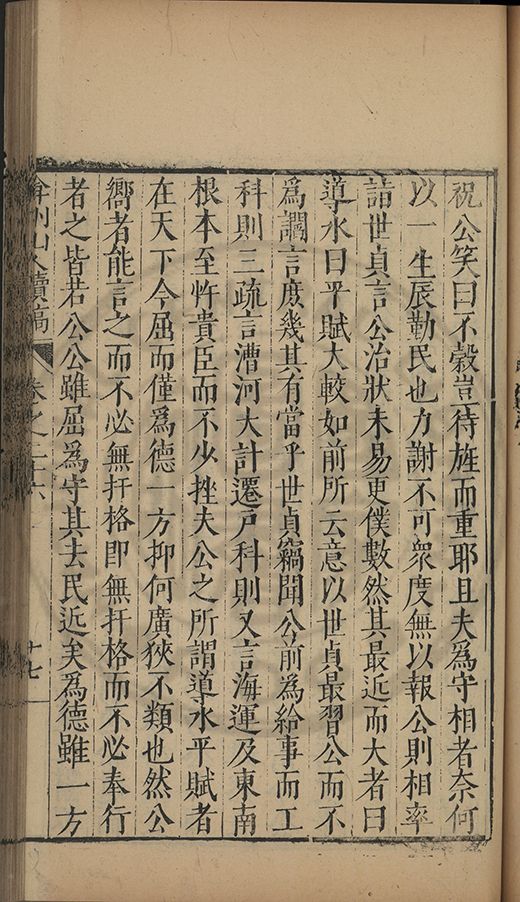 祝公笑曰不穀豈待旌而重耶且夫爲守相者奈何
以一生辰勤民也力謝不可衆度無以報公則相率
詣世貞言公治狀未易更僕數然其最近而大者曰
導水曰平賦大較如前所云意以世貞最習公而不
爲讕言庶幾其有當乎世貞竊聞公前為給事而工
科則三疏言漕河大計遷戶科則又言海運及東南
根本至忤貴臣而不少挫夫公之所謂導水平賦者
在天下今屈而僅爲德一方抑何廣狹不類也然公
嚮者能言之而不必無扞格即無扞格而不必奉行
者之皆若公公雖屈爲守其去民近矣爲德雖一方
弇州山人續稿 卷之三十六 十七